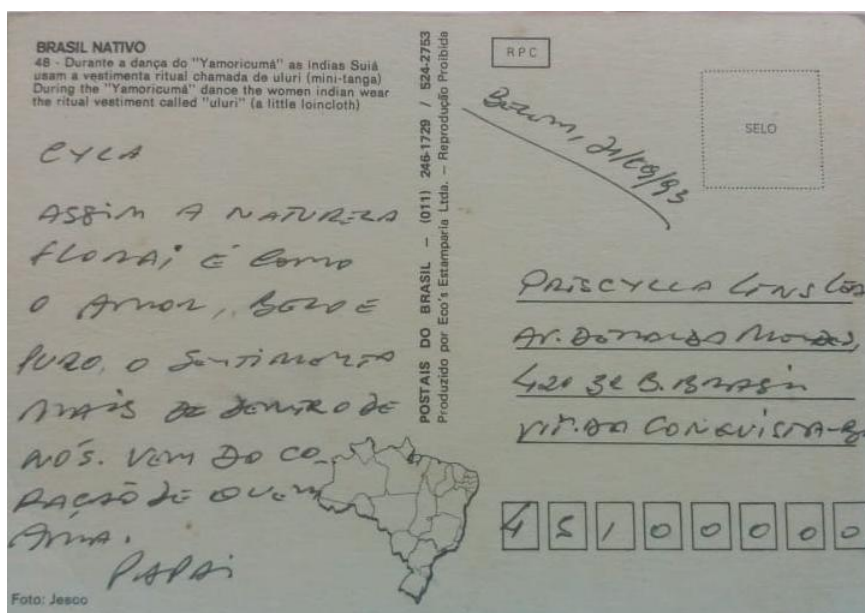 BRASIL NATIVO
48 - Durante a dança do "Yamoricumã" as índias Suiá
usam a vestimenta ritual chamada de uluri (mini-tanga)
During the "Yamoricumã" dance the women indian wear
the ritual vestiment called "uluri" (a little loincloth)
CYLA
ASSIM A NATUREZA
FLORAI É COMO
O AMOR, BELO E
PURO, O SENTIMENTO
MAIS DE DENTRO DE
NÓS. VEM DO CO-
RAÇÃO DE QUEM
AMA.
PAPAI
Foto: Jesco
POSTAIS DO BRASIL - (011) 246-1729 / 524-2753
Produzido por Eco's Estamparia Ltda. - Reprodução Proibida
RPC
SELO
Belém, 21/09/93
PRISCYLLA LINS
AV.
420 B. BRASIL
VIT. DA CONQUISTA-B
45100000